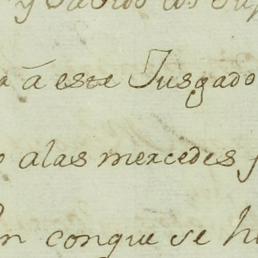 y
a á este Jusgado
o alas mercedes
en conque se h